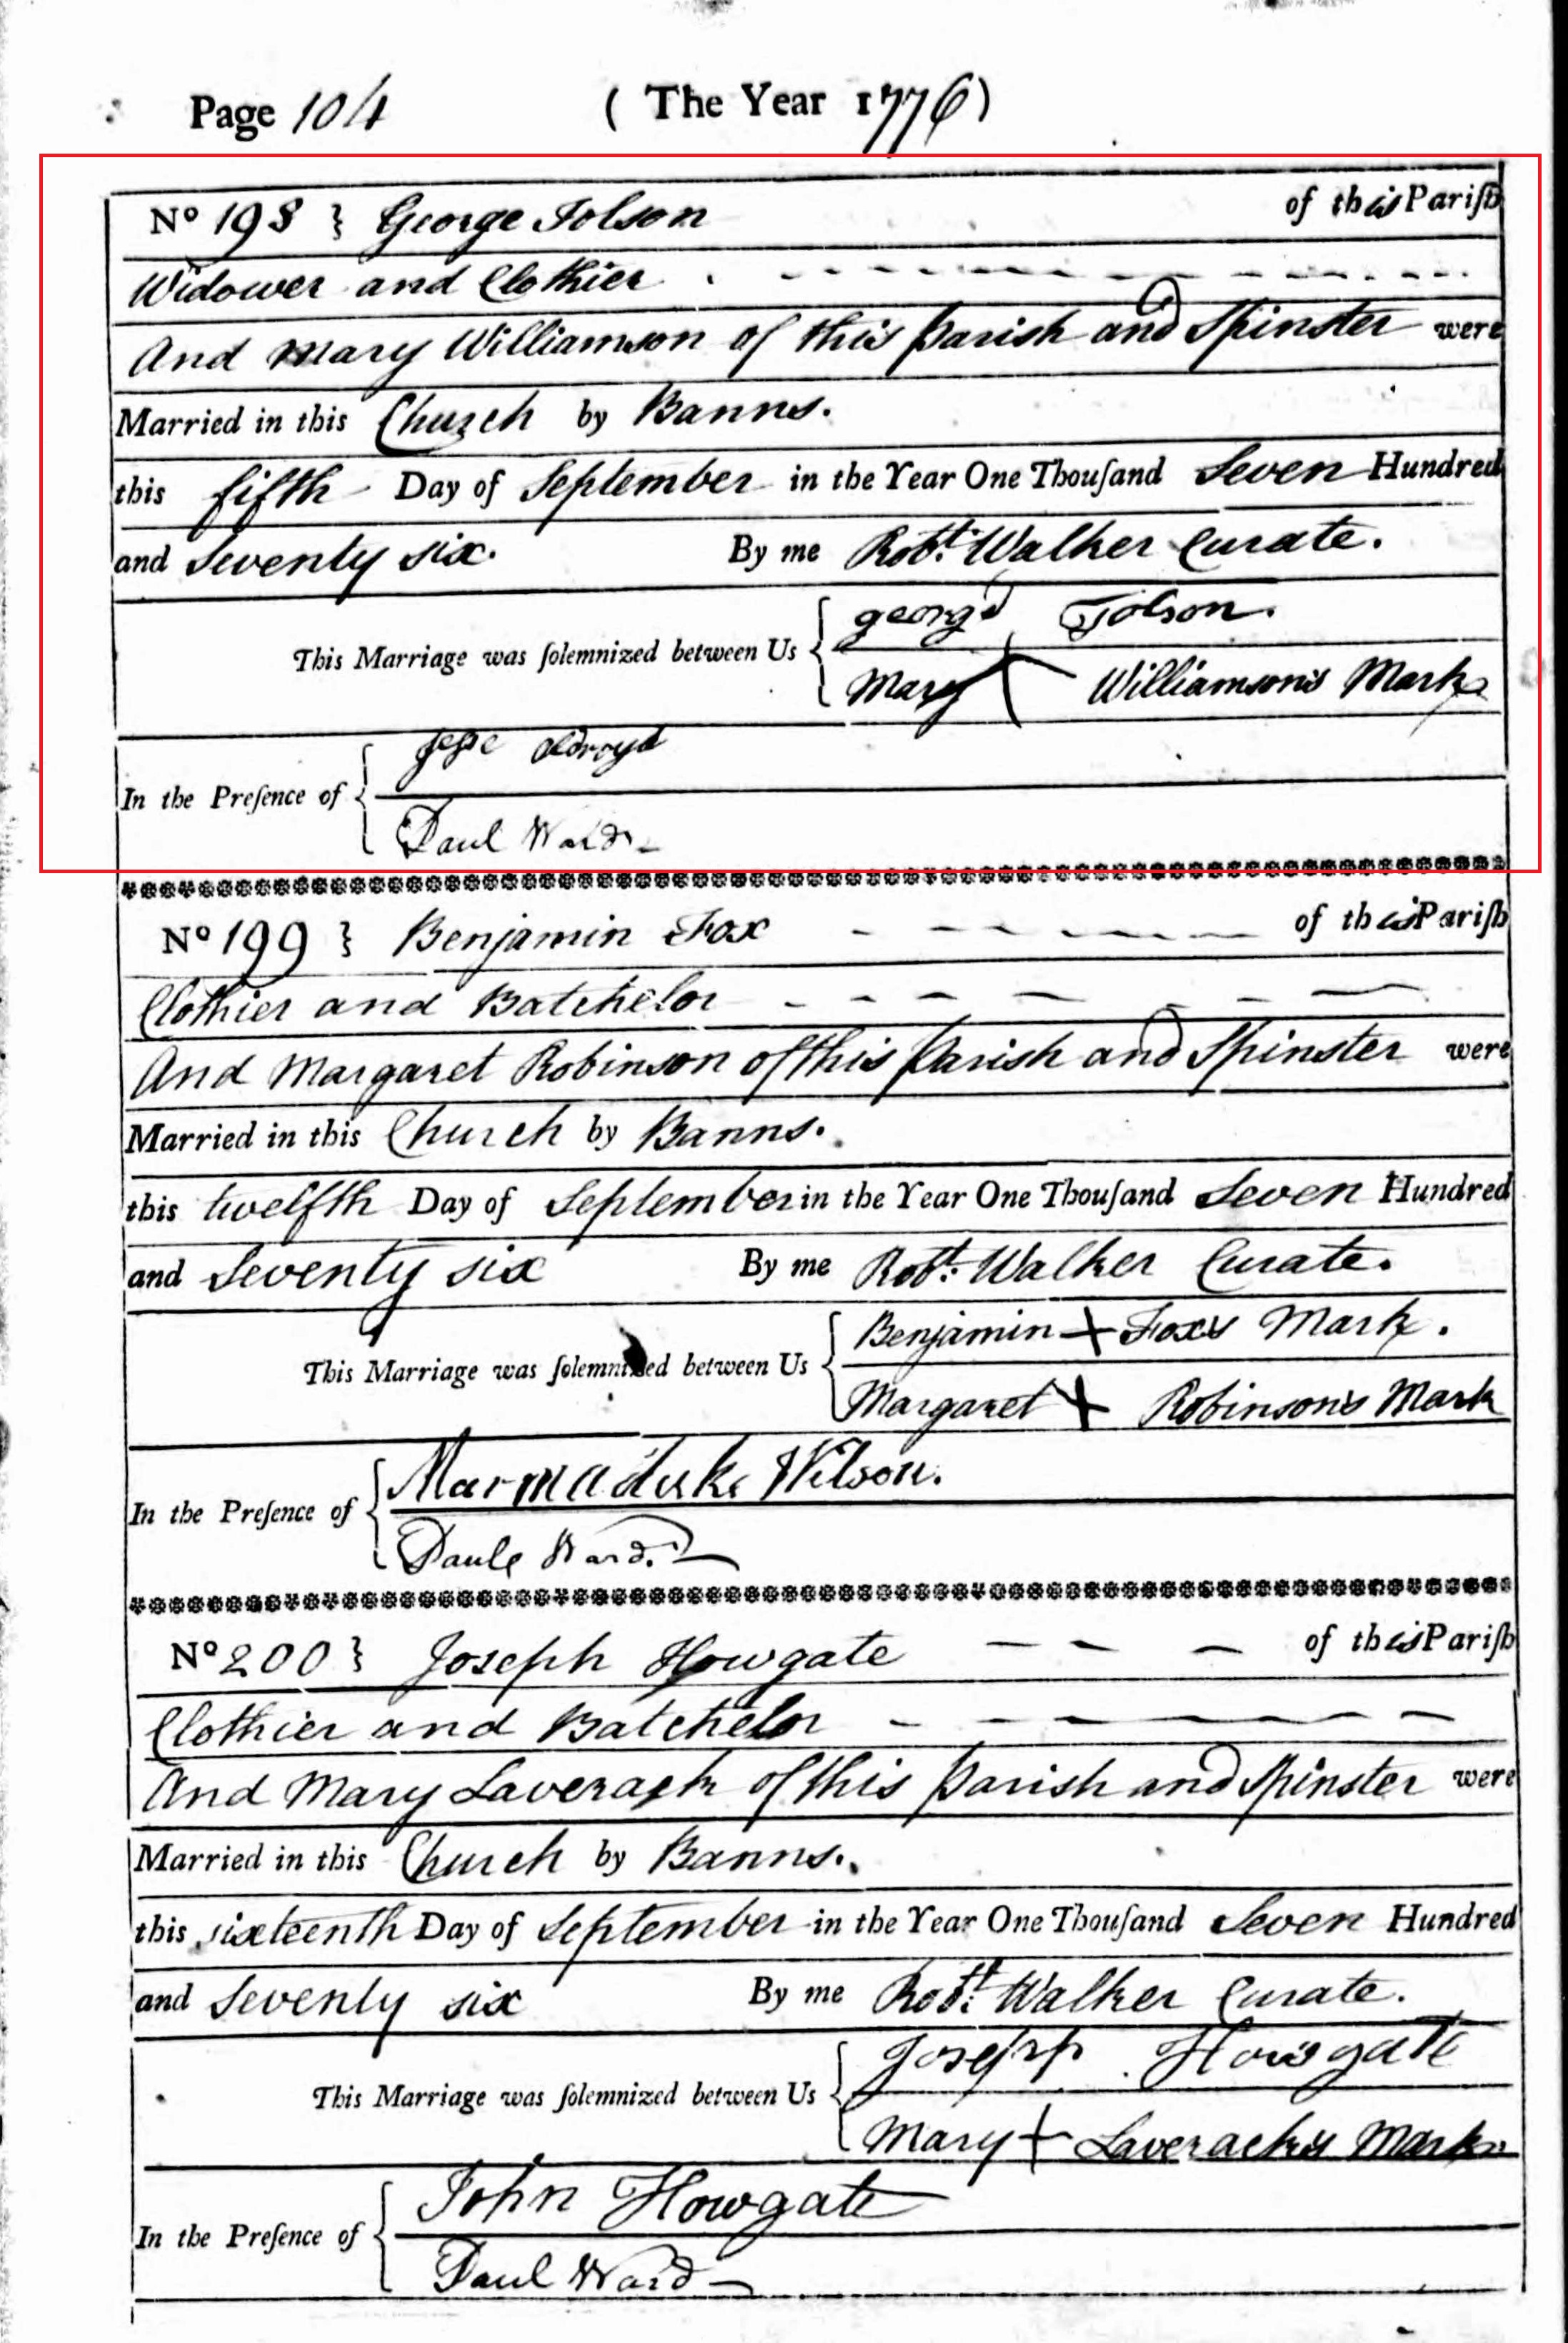 Page 104 ( The Year 1776)
Nº 198 } George Tolson of this Pariſh
Widower and Clothier
And Mary Williamson of this Parish and Spinster were
Married in this Church by Banns.
this fifth Day of September in the Year One Thouſand Seven Hundred
and Seventy six. By me Robt. Walker Curate.
This Marriage was ſolemnized between Us { georg Tolson.
Mary X Williamson's Mark
In the Preſence of { Jeſse Oldroyd
Paul Ward
Nº 199 } Benjamin Fox of this Pariſh
Clothier and Batchelor
And Margaret Robinson of this Parish and Spinster were
Married in this Church by Banns.
this twelfth Day of September in the Year One Thouſand Seven Hundred
and Seventy six By me Robt. Walker Curate.
This Marriage was ſolemnized between Us { Benjamin + Fox's Mark.
Margaret X Robinson's Mark
In the Preſence of { Marmaduke Wilson.
Paul Ward.
Nº 200 } Joseph Howgate of this Pariſh
Clothier and Batchelor
And Mary Laverack of this Parish and Spinster were
Married in this Church by Banns.
this sixteenth Day of September in the Year One Thouſand Seven Hundred
and Seventy six By me Robt. Walker Curate.
This Marriage was ſolemnized between Us { Joseph Howgate
Mary + Laverack's Mark
In the Preſence of { John Howgate
Paul Ward